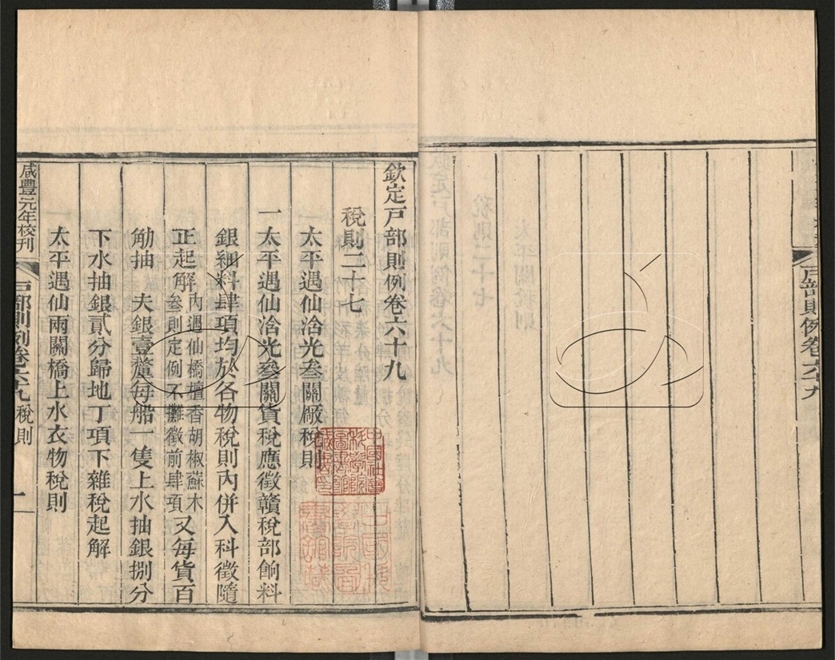 欽定戸部則例卷六十九
稅則二十七
一太平遇仙浛光叁關厰稅則
一太平遇仙浛光叁關貨稅應徵贛稅部餉料
銀細料肆項均於各物稅則內併入科徵隨
正起解內遇仙橋檀香胡椒蘇木叁則定例不攤徵前肆項又每貨百
觔抽夫銀壹釐每船一隻上水抽銀捌分
下水抽銀貳分歸地丁項下雜稅起解
太平遇仙兩關橋上水衣物稅則
咸豐元年校刊
戸部則例卷六十九稅則
一
戸部則例卷六十九